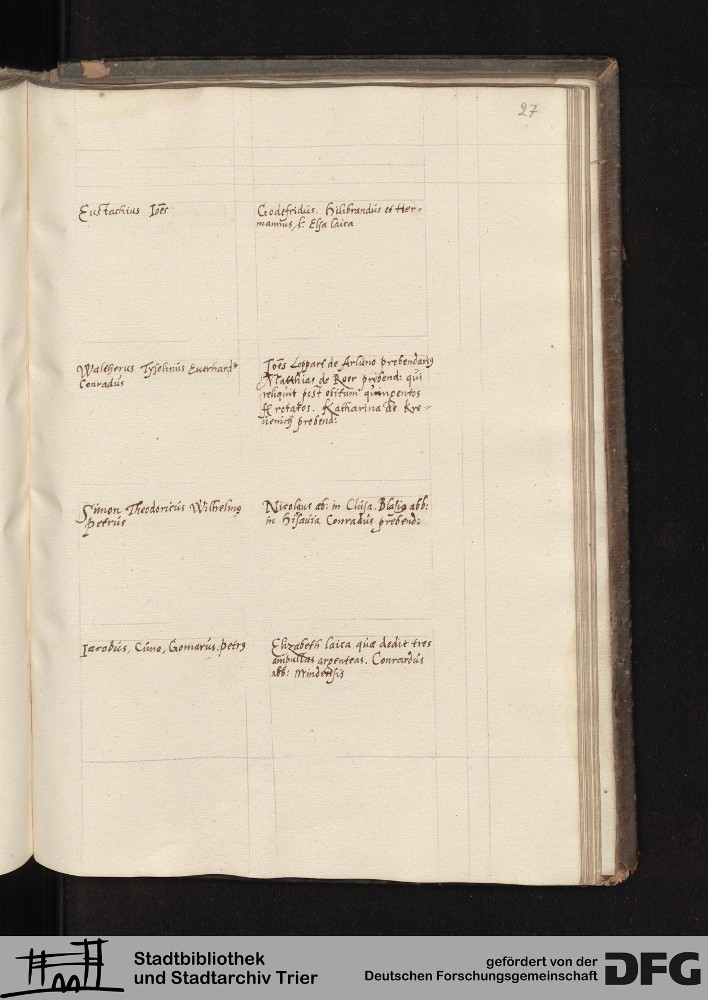 27
Eustachius Ioēs
Godefridus. Hilibrandus et Her=
mannus, Elsa laica
Waltherus Tyselinus Everhard9
Conradus
Ioēs Loppart de Arluno prebendari9
Matthias de Roer prebend: qui
reliquit post obitum quingentos
fl rotatos. Katharina de Kre=
venich prebend:
Simon Theodoricus Wilhelm9
Petrus
Nicolaus ab: in Clusa. Blasi9 abb:
in Hisavia Conradus prebend:
Iacobus, Cuno, Gomarus, Petr9
Elizabeth laica quæ dedit tres
ampullas argenteas. Conrardus
abb: Mindensis
Stadtbibliothek
und Stadtarchiv Trier
gefördert von der
Deutschen Forschungsgemeinschaft
DFG